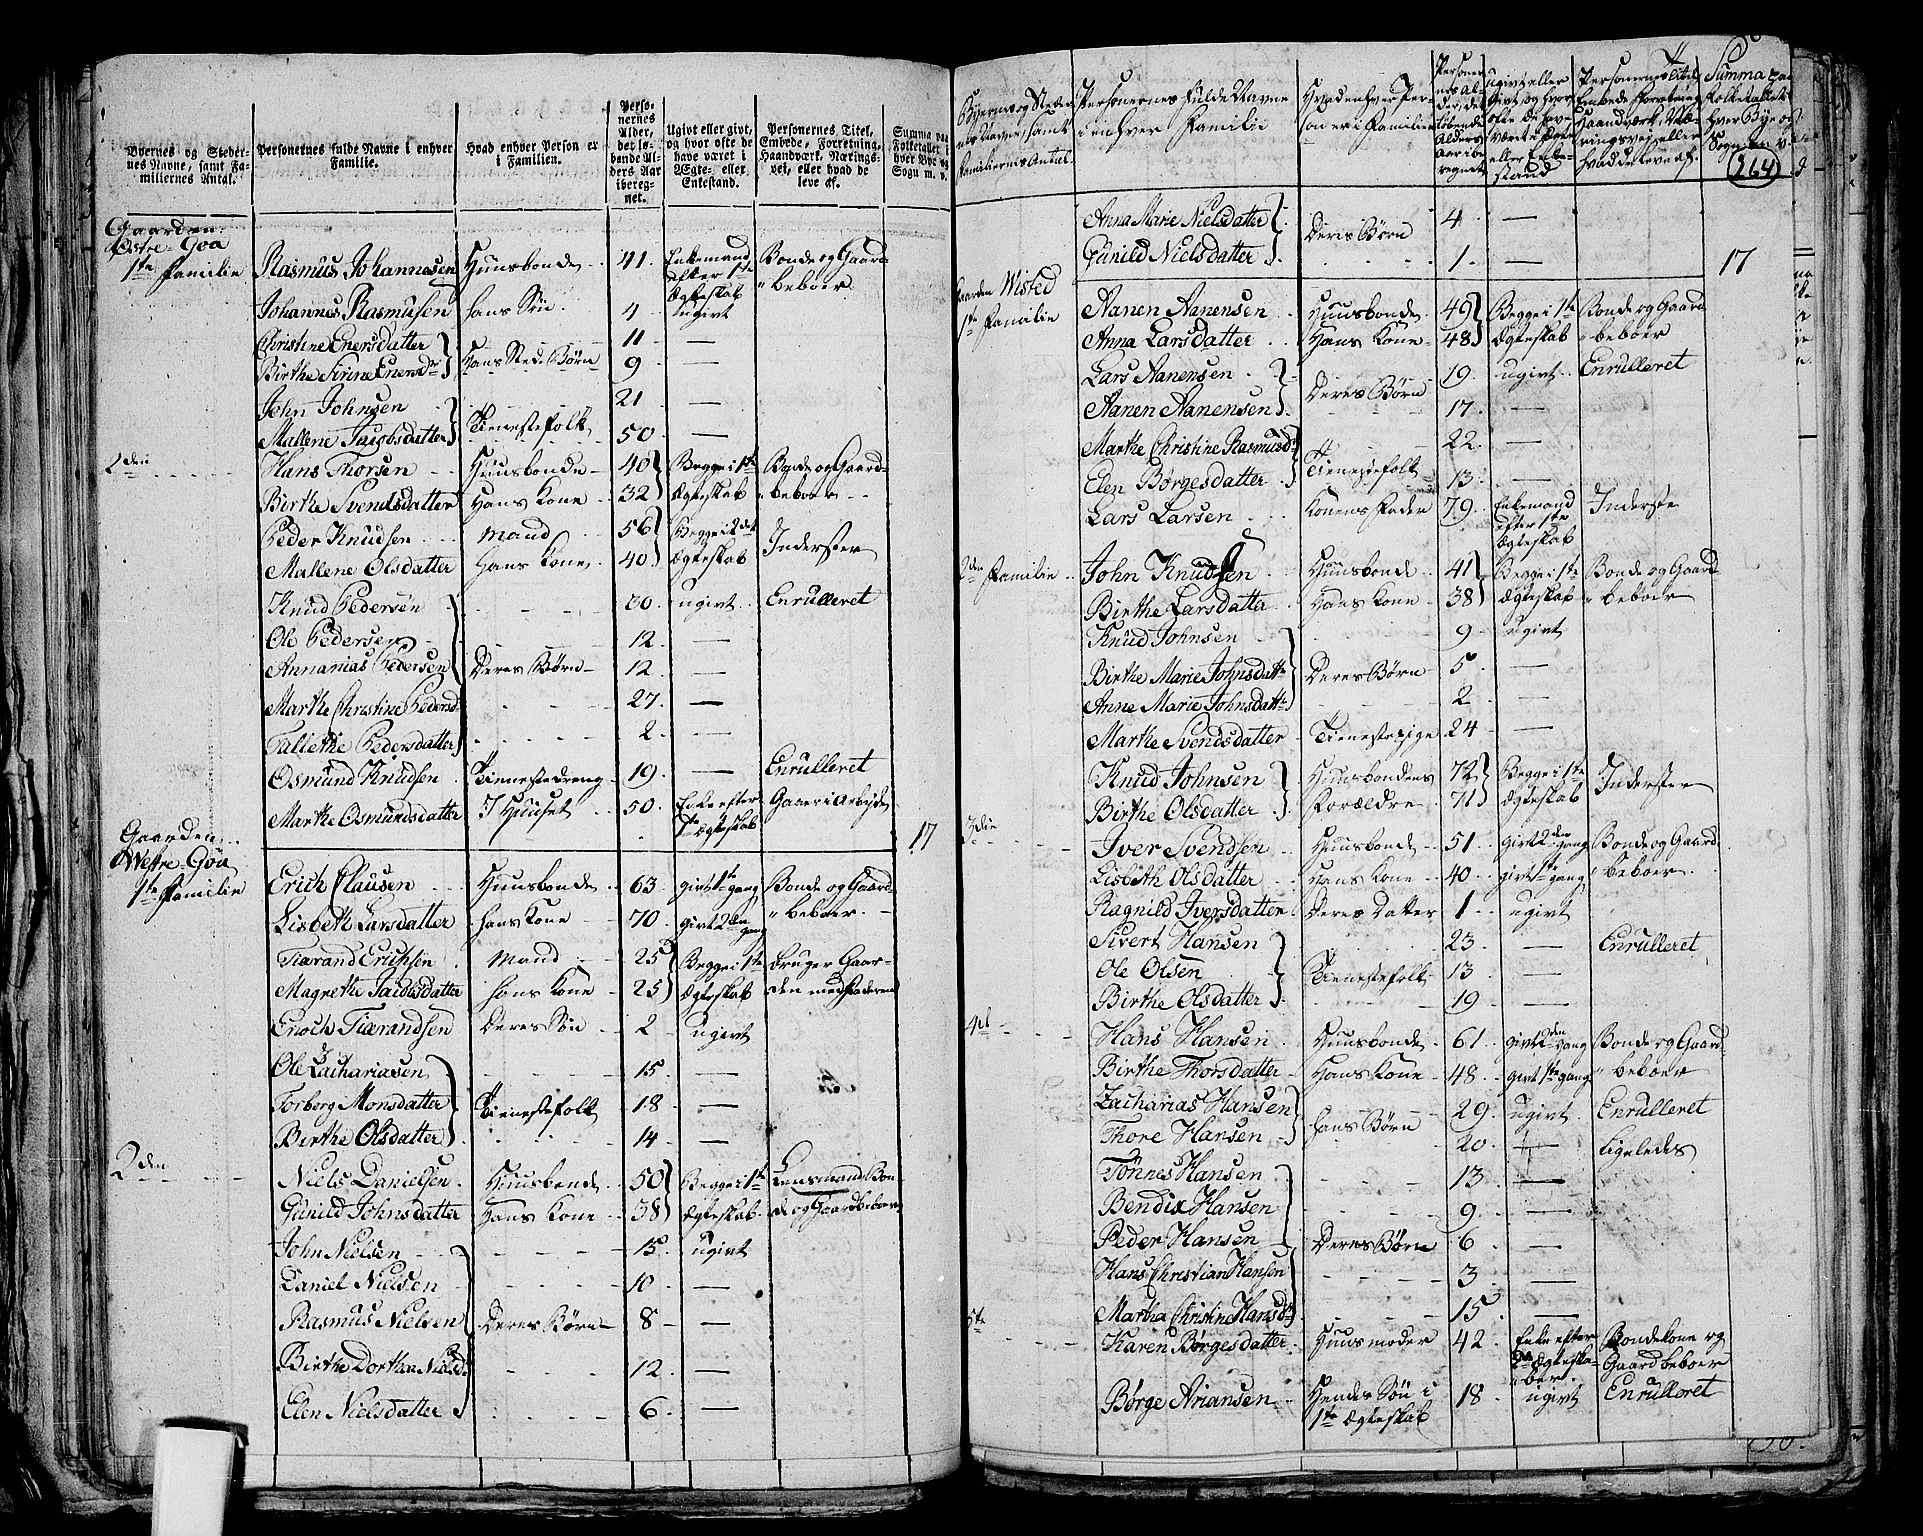 Byernes og Stedernes Navne, samt Familiernes Antal.
Personernes fulde Navne i enhver Familie.
Hvad enhver Person er i Familien.
Personernes Alder, det løbende Alders Aar iberegnet.
Ugivt eller givt, og hvor ofte de have været i Ægte- eller Enkestand.
Personernes Titel, Embede, Forretning, Haandværk, Næringsvei, eller hvad de leve af.
Summa paa Folketallet i hver Bye og Sogn m. v.
Gaarden Østre-Goa
1ste Familie Rasmus Johannesen Huusbonde 41. Enkemand efter 1ste Ægteskab Bonde og Gaardbeboer
Johannes Rasmusen hans Søn 4 ugivt
Christine Enersdatter 11 —
Birthe Sirine Enersdr hans Sted Børn 9 —
John Johnsen 21 —
Mallene Jacobsdatter Tienestefolk 50. —
2den Hans Thorsen Huusbonde 40 Begge i 1ste Bonde og Gaard-
Birthe Svendsdatter Hans Kone 32 Ægteskab beboer
Peder Knudsen Mand 56 Begge i 2det Inderster
Mallene Olsdatter hans Kone 40 Ægteskab
Knud Pedersen 20. ugivt Enrulleret
Ole Pedersen 12. —
Annanias Pedersen Deres Børn 12 —
Marthe Christine Pedersd 27. —
Tallethe Pedersdatter 2. —
Osmund Knudsen Tienestedreng 19. — Enrulleret
Marthe Osmundsdatter I Huuset 50. Enke efter 1ste Ægteskab Gaaer i Arbeyde
17
Gaarden Westre-Goa
1ste Familie Erich Clausen Huusbonde 63 givt 1ste gang Bonde og Gaard-
Lisbeth Larsdatter hans Kone 70 givt 2den gang beboer
Tiærand Erichsen Mand 25 Begge i 1ste bruger Gaar-
Magrethe Jacobsdatter hans Kone 25 Ægteskab den med Faderen
Erich Tiærandsen Deres Søn 2 ugivt
Ole Zachariasen 15. —
Torberg Monsdatter Tienestefolk 18 —
Birthe Olsdatter 14 —
2den Niels Danielsen Huusbonde 50 Begge i 1ste Lensmand Bon-
Gunild Johnsdatter Hans Kone 38 Ægteskab de og Gaardbeboer
John Nielsen 15. ugivt
Daniel Nielsen 10 —
Rasmus Nielsen Deres Børn 8 —
Birthe Dorthea Nielsd. 12. —
Elen Nielsdatter 6. —
Byernes og Stedernes Navne, samt Familiernes Antal.
Personernes fulde Navne i enhver Familie
Hvad enhver Person er i Familien
Personernes Alder, det løbende Alders Aar iberegnet
ugivt eller givt, og hvor ofte de have været i Ægte eller Enkestand
Personernes Titel, Embede Forretning, Haandværk, Næringsvej eller hvad de leve af.
Summa paa Folketallet i hver Bye og Sogn m. v.
264
Anna Marie Nielsdatter 4. —
Gunild Nielsdatter Deres Børn 1. —
17
Gaarden Wisted
1ste Familie Aanen Aanensen Huusbonde 49 Begge i 1ste Bonde og Gaard
Anna Larsdatter Hans Kone 48 Ægteskab beboer
Lars Aanensen 19. ugivt Enrulleret
Aanen Aanensen Deres Børn 17. —
Marthe Christine Rasmusd 22. —
Elen Børgesdatter Tienestefolk 13. —
Lars Larsen Konens Fader 79. Enkemand efter 1ste Ægteskab Inderste
2den Familie John Knudsen Huusbonde 41 Begge i 1ste Bonde og Gaard
Birthe Larsdatter Hans Kone 38 Ægteskab beboer
Knud Johnsen 9 ugivt
Birthe Marie Johnsdattr Deres Børn 5 —
Anne Marie Johnsdattr 2 —
Marthe Svendsdatter Tienestepige 24 —
Knud Johnsen Huusbondens 72 Begge i 1ste Inderster
Birthe Olsdatter Forældre 71 Ægteskab
3die Iver Svendsen Huusbonde 51. givt 2den gang Bonde og Gaard.
Lisbeth Olsdatter Hans Kone 40 givt 1ste gang beboer
Ragnild Iversdatter Deres Datter 1 ugivt
Sivert Hansen 23. — Enrulleret
Ole Olsen Tienestefolk 13 —
Birthe Olsdatter 19 —
4de Hans Hansen Huusbonde 61. givt 2den gang Bonde og Gaard-
Birthe Thorsdatter Hans Kone 48 givt 1ste gang beboer
Zacharias Hansen 29. ugivt Enrulleret
Thore Hansen hans Børn 20 — ligeledes
Tønnes Hansen 13. —
Bendix Hansen 9. —
Peder Hansen Deres Børn 6 —
Hans Christian Hansen 3 —
Martha Christine Hansdr 15 —
5te Karen Børgesdatter Huusmoder 42. Enke efter 2de Ægteskaber. Bondekone og Gaardbeboer
Børge Ariansen Hendes Søn i 1ste Ægteskab 18 ugivt Enrulleret